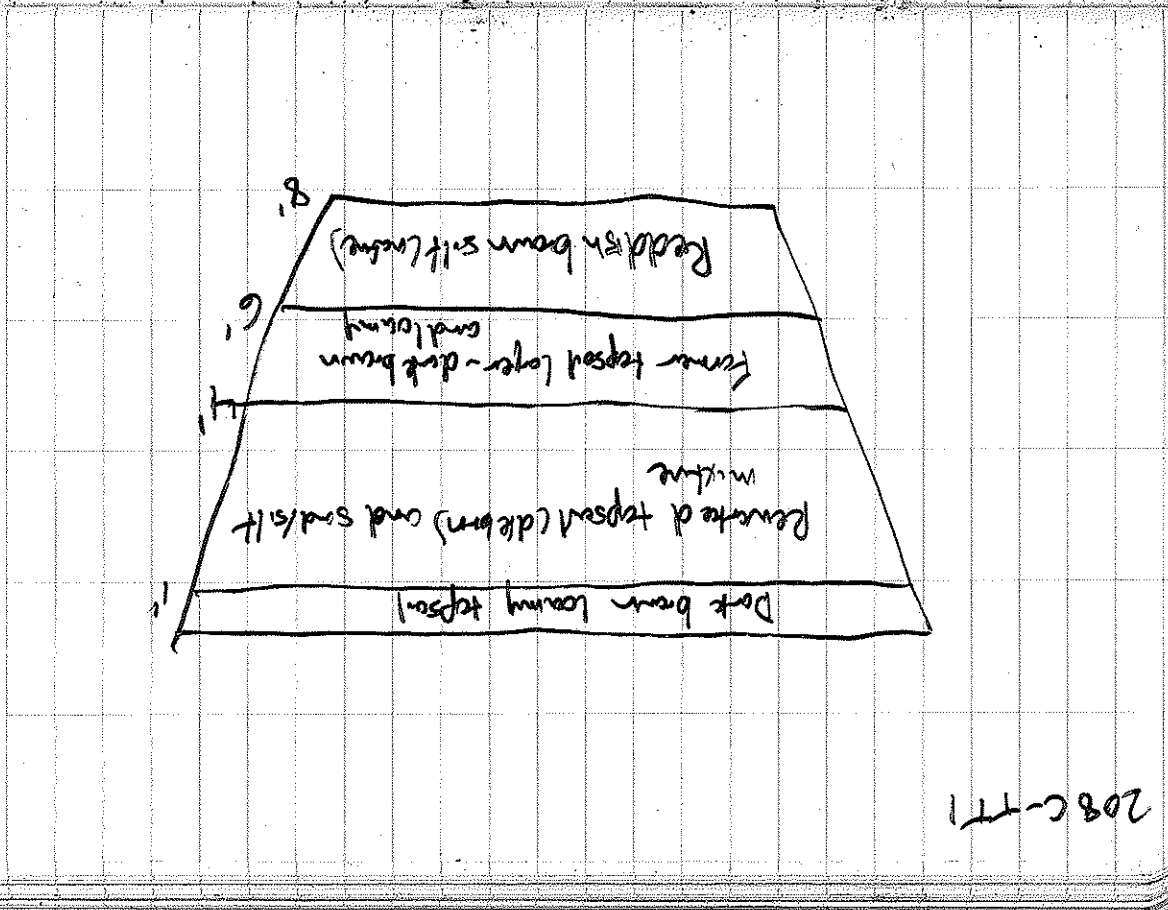 208C-TT1
Dark brown loamy topsoil
1'
Reworked topsoil (dk brn) and sand/silt
mixture
4'
Former topsoil layer - dark brown
and loamy
6'
Reddish brown silt (native)
8'